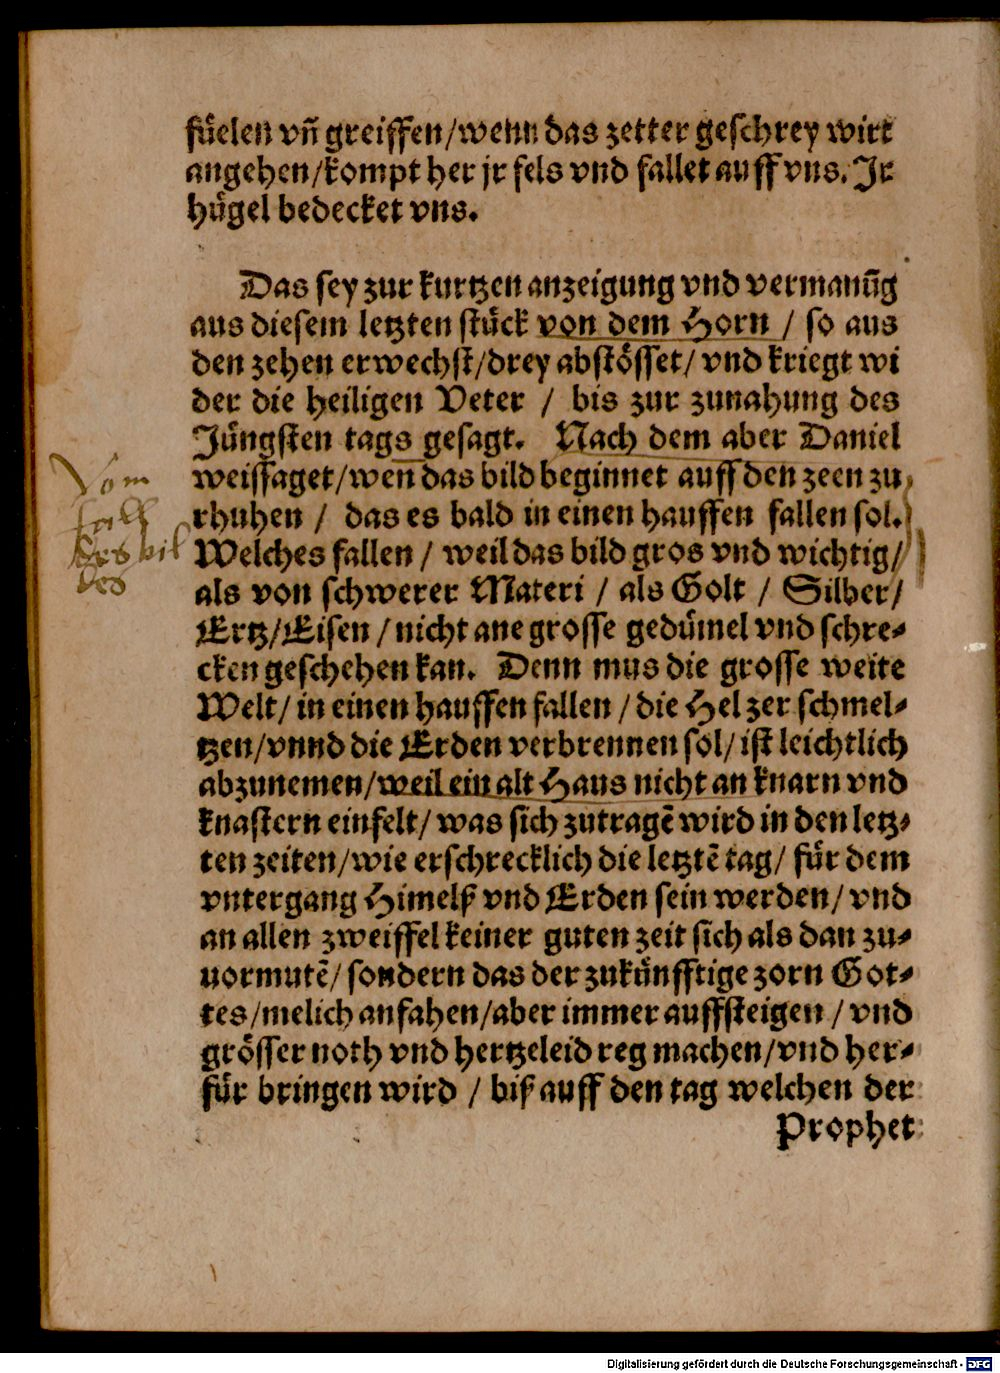 fuͤelen vñ greiffen/wenn das zetter geschrey wirt
angehen/kompt her jr fels vnd fallet auff vns. Jr
huͤgel bedecket vns.
Das sey zur kurtzen anzeigung vnd vermanũg
aus diesem letzten stuͤck von dem Horn / so aus
den zehen erwechst/drey abstoͤsset/ vnd kriegt wi
der die heiligen Veter / bis zur zunahung des
Juͤngsten tags gesagt. Nach dem aber Daniel
weissaget/wen̄ das bild beginnet auff den zeen zu
rhuhen / das es bald in einen hauffen fallen sol.
Vom
fall
des bil
des
Welches fallen / weil das bild gros vnd wichtig/
als von schwerer Materi / als Golt / Silber/
Ertz/Eisen / nicht ane grosse geduͤmel vnd schre-
cken geschehen kan. Denn mus die grosse weite
Welt/ in einen hauffen fallen / die Hel zer schmel-
tzen/vnnd die Erden verbrennen sol/ ist leichtlich
abzunemen/weil ein alt Haus nicht an knarn vnd
knastern einfelt/ was sich zutragẽ wird in den letz-
ten zeiten/wie erschrecklich die letztẽ tag/ fuͤr dem
vntergang Himelß vnd Erden sein werden/ vnd
an allen zweiffel keiner guten zeit sich als dan zu-
uormutẽ/ sondern das der zukuͤnfftige zorn Got-
tes/melich anfahen/aber immer auffsteigen / vnd
groͤsser noth vnd hertzeleid reg machen/vnd her-
fuͤr bringen wird / biß auff den tag welchen der
Prophet
Digitalisierung gefördert durch die Deutsche Forschungsgemeinschaft - DFG